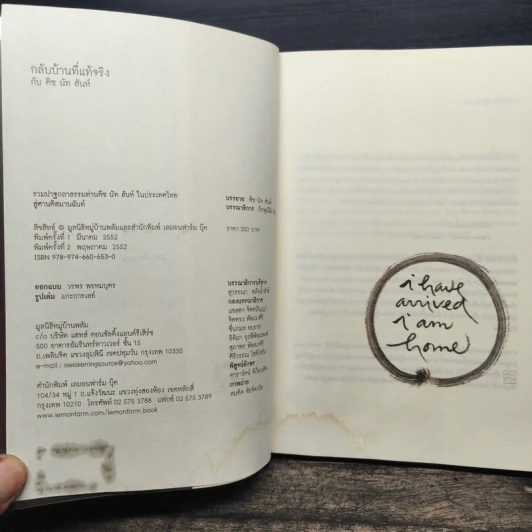 กลับบ้านที่แท้จริง
กับ ติช นัท ฮันห์
รวมปาฐกถาธรรมท่านติช นัท ฮันห์ ในประเทศไทย
สู่ศานติสมานฉันท์
ลิขสิทธิ์ © มูลนิธิหมู่บ้านพลัมและสำนักพิมพ์ เลมอนฟาร์ม บุ๊ค
พิมพ์ครั้งที่ 1 มีนาคม 2552
พิมพ์ครั้งที่ 2 พฤษภาคม 2552
ISBN 978-974-660-653-0
ออกแบบ วรพร พรหมบุตร
รูปเล่ม แกะการเลย์
มูลนิธิหมู่บ้านพลัม
c/o บริษัท แฮทส์ คอนซัลติ้งแอนด์รีเสิร์ช
500 อาคารอัมรินทร์ทาวเวอร์ ชั้น 11
ถ.เพลินจิต แขวงลุมพินี เขตปทุมวัน กรุงเทพ 10330
e-mail : awakeningsource@yahoo.com
สำนักพิมพ์ เลมอนฟาร์ม บุ๊ค
104/34 หมู่ 1 ถ.แจ้งวัฒนะ แขวงทุ่งสองห้อง เขตหลักสี่
กรุงเทพ 10210 โทรศัพท์ 02 575 3788 แฟกซ์ 02 575 3789
www.lemonfarm.book
บรรยาย ติช นัท ฮันห์
บรรณาธิการ
ราคา 200 บาท
บรรณาธิการบริหาร
กองบรรณาธิการ
พิสูจน์อักษร
ภาพถ่าย
i have
arrived
i am
home